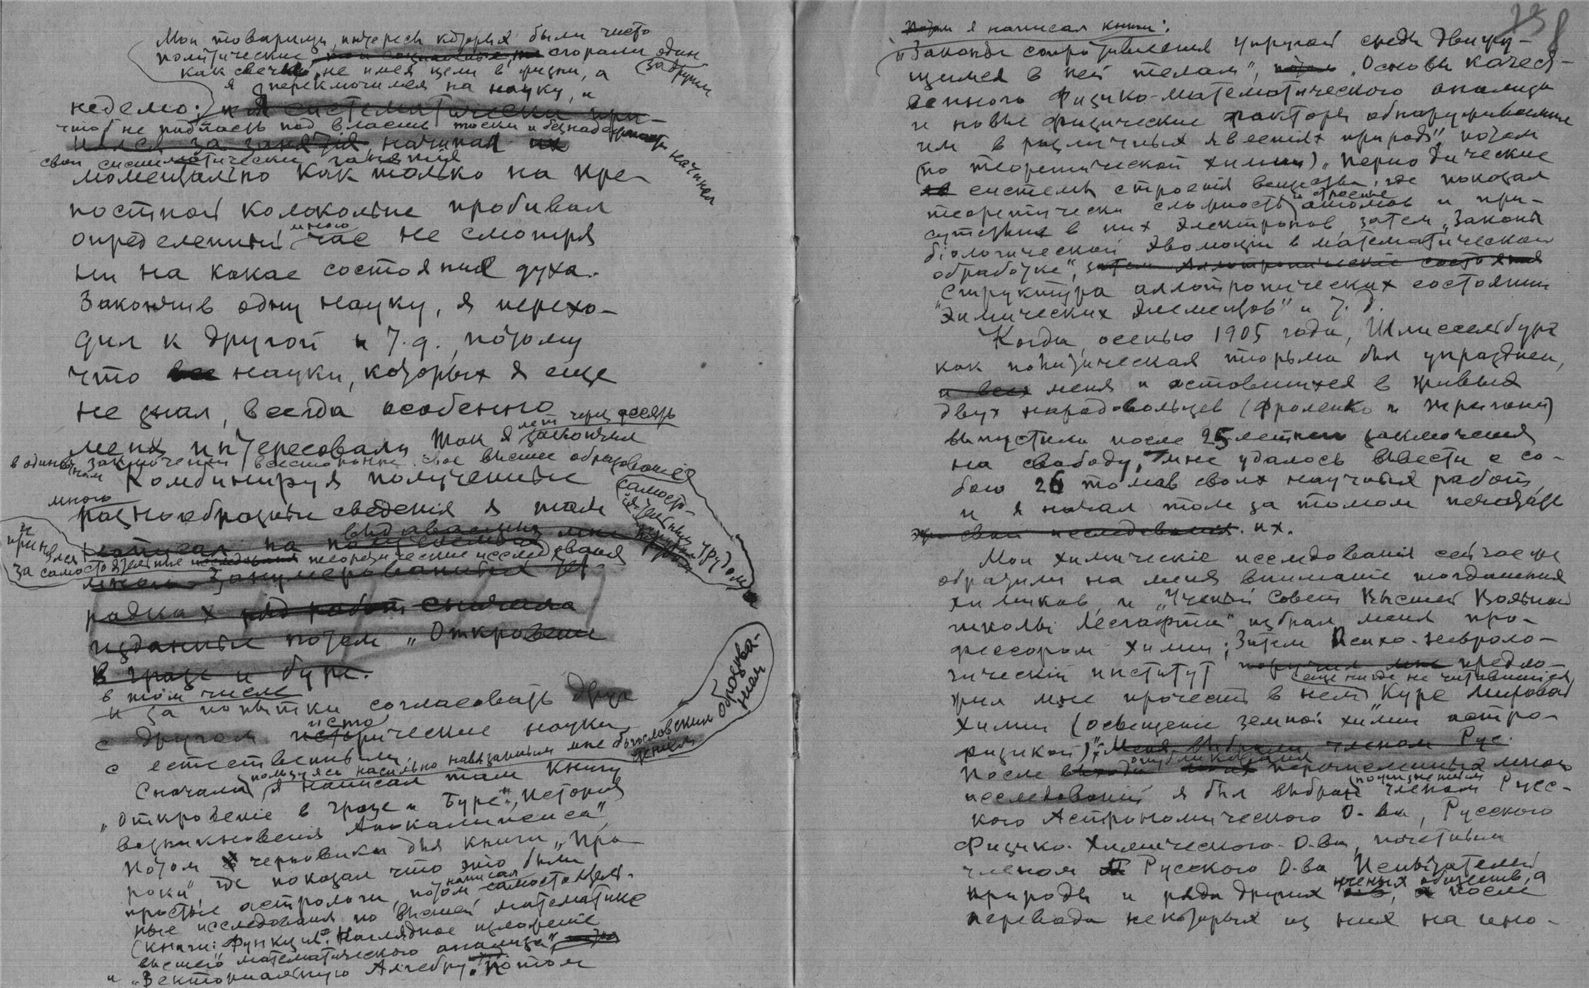 Мои товарищи, интересы которых были чисто
политические сгорали один
как свечка, не имея цели в жизни, а за другим
я переключился на науку, и
неделю: я систематически при-
чтоб не попасть под власть тоски и безнадежности начинал
нялся за занятия начиная их
свои систематические занятия
моментально как только на кре-
постной колокольне пробивал
определенный мною час не смотря
ни на какое состояние духа.
Закончив одну науку, я перехо-
дил к другой и т. д., потому
что все науки, которых я еще
не знал, всегда особенно
меня интересовали Так я через десять
лет закончил
в одиночном заключении всестороннее свое высшее образование
самостоятельным трудом
Комбинируя полученные
много
разнообразные сведения я там
и принялся
за самостоятельные теоретические исследования
радках ряд работ сначала
изданные потом „Откровение
в грозе и буре.
в том числе
и за попытки согласовать друг
с другом исторические науки
с естественными.
пользуясь насильно навязанным мне богословским чтением образова-
нием
Сначала я написал там книгу
„Откровение в грозе и буре", „История
возникновения Апокалипсиса",
потом черновики для книги „Про-
роки" где показал что это были
простые астрологи потом написал самостоятель-
ные исследования по высшей математике
(книги: Функция. Наглядное изложение
высшего математического анализа",
и „Векториальную Алгебру". Потом
238
я написал книги:
„Законы сопротивления упругой среды движу-
щимся в ней телам", „Основы качест-
венного физико-математического анализа
и новые физические факторы обнаруживаемые
им в различных явлениях природы", потом
(по теоретической химии) „Периодические
системы строения вещества", где показал
теоретически сложность и строение атомов и при-
сутствие в них электронов, затем „Законы
биологической эволюции в математической
обработке", затем Аллотропические состояния
„Структура аллотропических состояний
химических элементов" и т. д.
Когда, осенью 1905 года, Шлиссельбург
как политическая тюрьма был упразднен,
и всех меня и оставшихся в живых
двух народовольцев (Фроленко и
выпустили после 25 летнего заключения
на свободу, мне удалось вывести с со-
бою 26 томов своих научных работ,
и я начал том за томом печатать
свои исследования их.
Мои химические исследования сейчас же
обратили на меня внимание тогдашних
химиков, и „Ученый Совет Высшей Вольной
школы Лесгафта" избрал меня про-
фессором химии; Затем Психо-невроло-
гический институт поручил мне предло-
жил мне прочесть в нем еще нигде не читавшийся Курс Мировой
химии (освещение земной химии астро-
физикой). Меня выбрали членом Рус.
После опубликования перечисленных мною
исследований я был выбран пожизненным членом Русс-
кого Астрономического О-ва, Русского
Физико-Химического О-ва, почетным
членом Русского О-ва Испытателей
природы и ряда других ученых обществ, а после
перевода некоторых из них на ино-